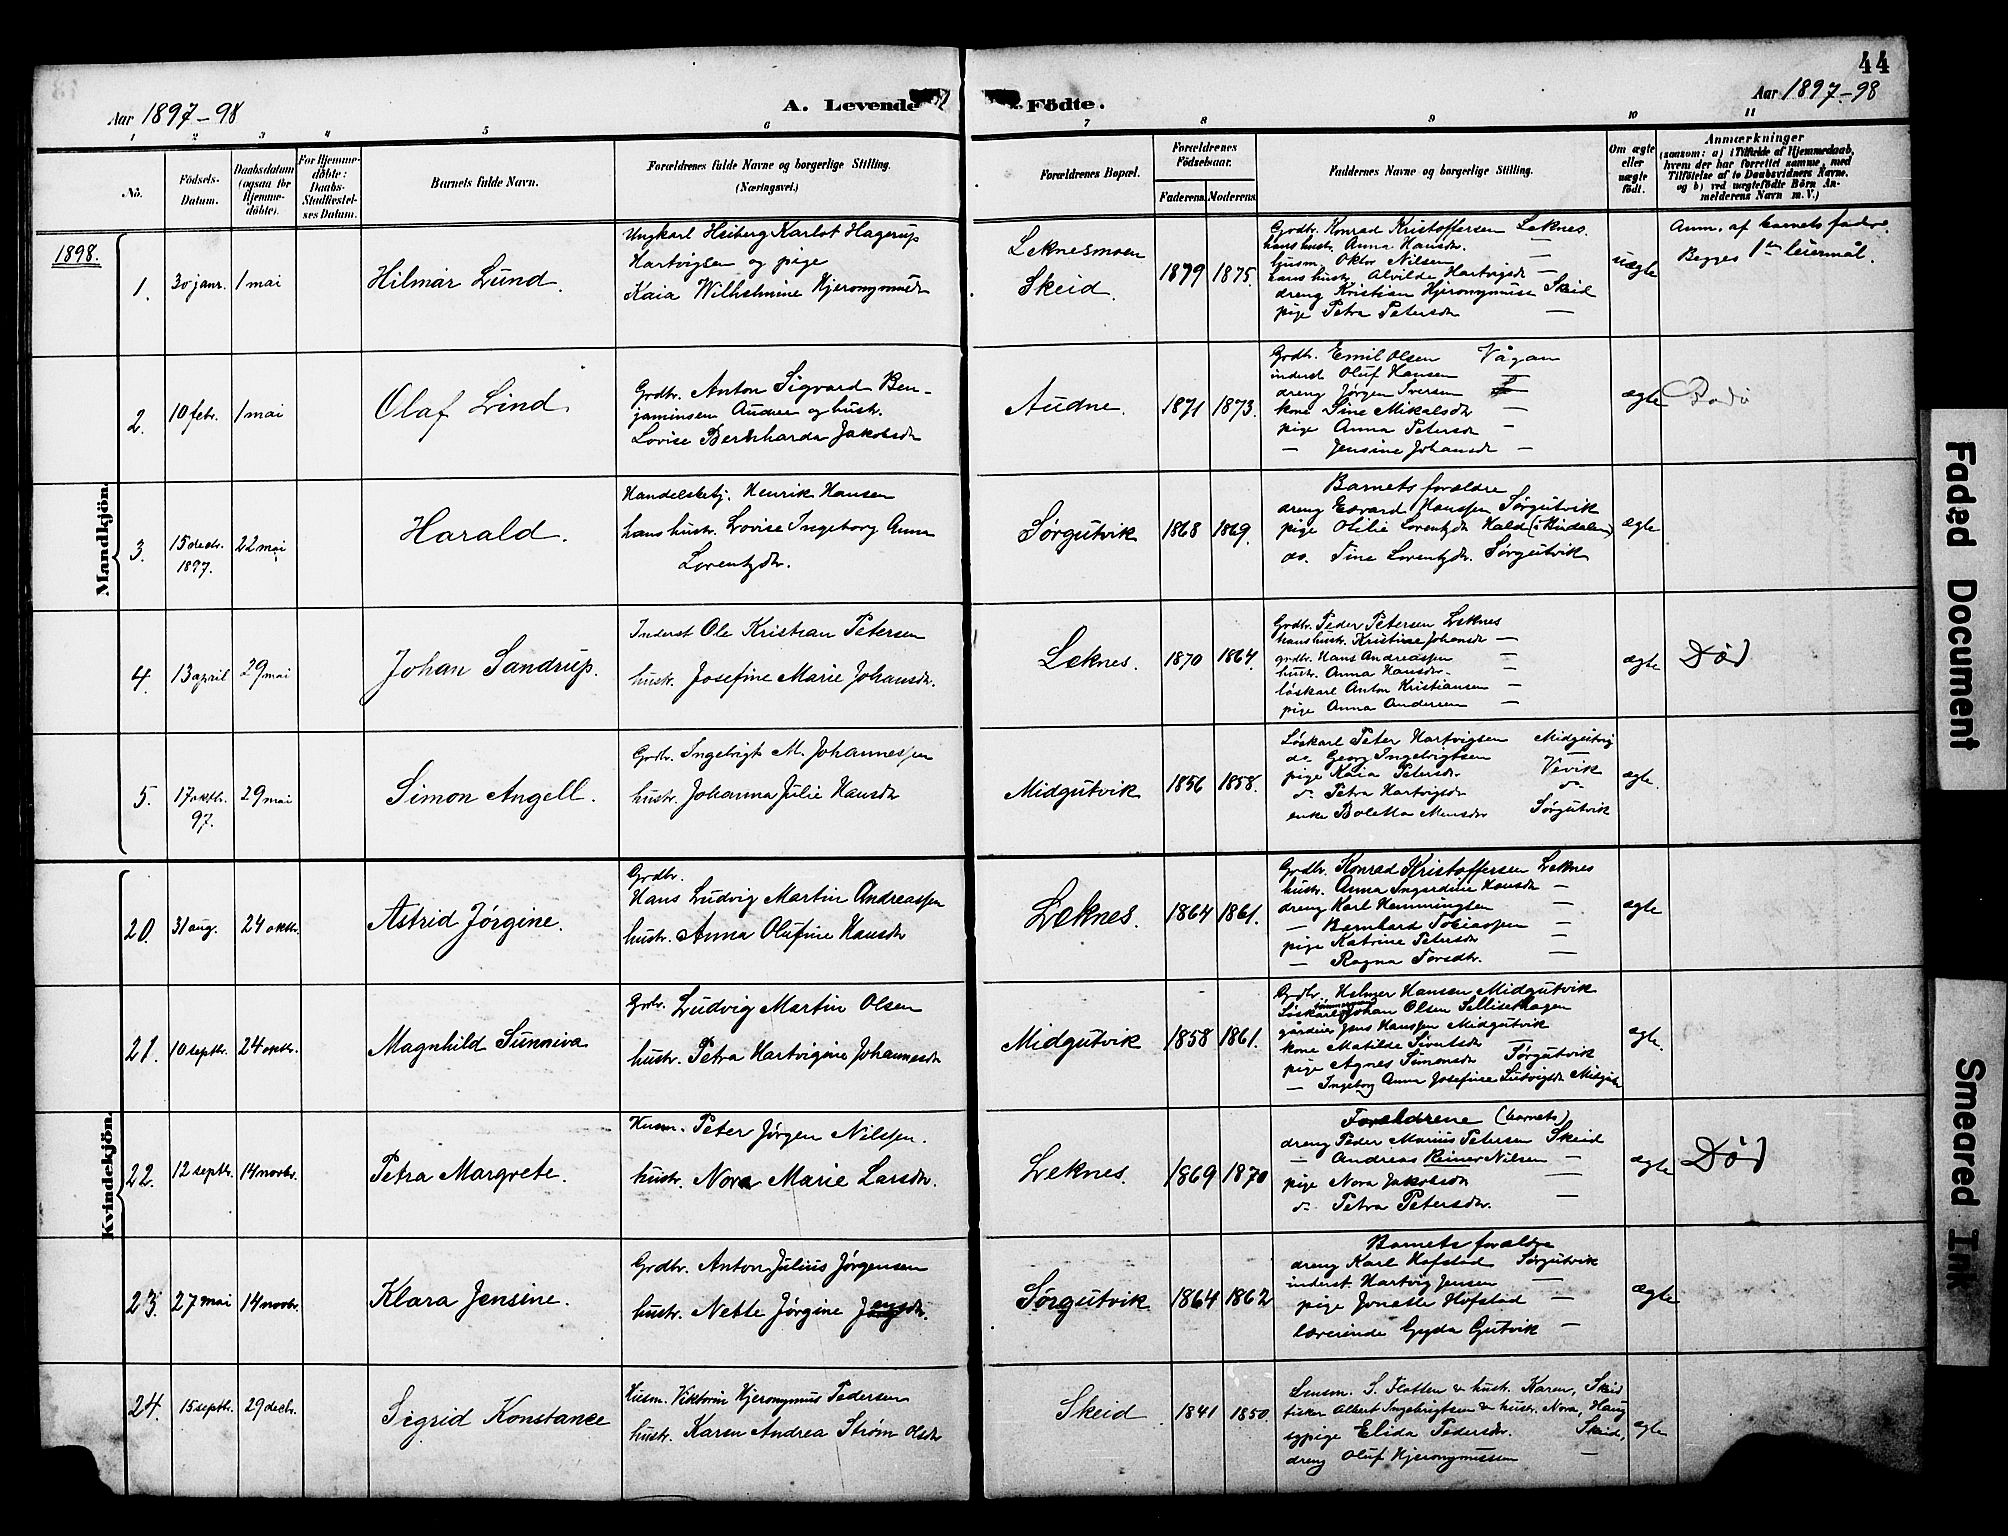 44
Aar 1897-98
A. Levende
Födte.
Aar 1897-98
1 2 3 4 5 6 7 8 9 10 11
No.
Födsels-Datum.
Daabsdatum (ogsaa for Hjemmedöbte).
For Hjemmedöbte: Daabs-Stadfæstelses Datum.
Barnets fulde Navn.
Forældrenes fulde Navne og borgerlige Stilling. (Næringsvei.)
Forældrenes Bopæl.
Forældrenes Födselsaar.
Faderens Moderens
Faddernes Navne og borgerlige Stilling.
Om ægte eller uægte födt.
Anmærkninger
(saasom: a) i Tilfælde af Hjemmedaab, hvem der har forrettet samme, med Tilföielse af to Daabsvidners Navne. og b) ved uægtefödte Börn Anmelderens Navn m.V.)
1898.
Mandkjön.
1. 30 janr. 1 mai
Hilmar Lund.
Ungkarl Heiberg Karlot Hagerup
Hartvigsen og pige
Kaia Wilhelmine Hjeronymusd
Leknesmoen
Skeid.
1879 1875.
Grdbr. Konrad Kristoffersen Leknes.
hans hustr. Anna Hansdr. —
husm. Oktor Nilsen —
hans hustr. Alvilde Hartvigsdr —
dreng Kristian Hjeronymuss Skeid
pige Petra Petersdr —
uægte
Anm. af barnets fader.
Begges 1ste leiermål.
2. 10 febr. 1 mai
Olaf Lind.
Grdbr. Anton Sigvard Ben-
jaminsen Audne og hustr.
Lovise Bernharda Jakobsdr
Audne.
1871 1873.
Grdbr. Emil Olsen Vågan
inderst Oluf Hansen —
dreng Jørgen Iversen
kone Sine Mikalsdr —
pige Anna Petersdr —
— Jensine Johansdr —
ægte
Bodø
3. 15 decbr. 1897. 22 mai
Harald.
Handelsbetj. Henrik Hansen
hans hustr. Lovise Ingeborg Anna
Lorentzdr.
Sørgutvik
1868 1869.
Barnets forældre
dreng Edvard Hanssen Sørgutvik
pige Otilie Lorentzdr Hald (i Vindalen)
do. Tine Lorentzdr. Sørgutvik
ægte
4. 13 april 29 mai
Johan Sandrup.
Inderst Ole Kristian Petersen
hustr. Josefine Marie Johansdr.
Leknes.
1870 1864.
Grdbr. Peder Petersen Leknes
hans hustr. Kristine Johansdr —
grdbr. Hans Andreassen —
hustr. Anna Hansdr. —
løskarl Anton Kristiansen —
pige Anna Andersen —
ægte
Død
5. 17 oktbr. 97. 29 mai
Simon Angell.
Grdbr. Ingebrigt M. Johannessen
hustr. Johanna Julie Hansdr
Midgutvik
1856 1858.
Løskarl Peter Hartvigsen Midgutvig
do Georg Ingebrigtsen —
pige Kaia Petersdr Vevik
do Petra Hartvigsdr do
enke Boletta Monsdr Sørgutvik
ægte.
Kvindekjön.
20. 31 aug. 24 oktbr.
Astrid Jørgine.
Grdbr.
Hans Ludvig Martin Andreassen
hustr. Anna Olufine Hansdr
Leknes.
1864 1861.
Grdbr. Konrad Kristoffersen Leknes
hustr. Anna Ingerdine Hansdr —
dreng Karl Hemmingsen —
— Bernhard Tobiassen —
pige Katrine Petersdr —
— Ragna Torsdr. —
ægte
21. 10 septbr. 24 oktbr.
Magnhild Sunniva
Grdbr. Ludvig Martin Olsen
hustr. Petra Hartvigine Johannesdr
Midgutvik
1858 1861.
Grdbr. Helmer Hansen Midgutvik
Løskarl Johan Olsen Sellisethagen
Jens Hanssen Midgutvik
kone Matilde Sivertsdr —
pige Agnes Simonsdr Sørgutvik
— Ingeborg Anna Josefine Ludvigsdr Midgutv
ægte.
22. 12 septbr. 14 novbr.
Petra Margrete.
Husm. Peter Jørgen Nilssen.
hustr. Nora Marie Larsdr.
Leknes.
1869 1870
Forældrene (barnets)
dreng Peder Marius Petersen Skeid
— Andreas Reiner Nilsen —
pige Nora Jakobsdr —
do Petra Petersdr. —
ægte
Død
23. 27 mai 14 novbr.
Klara Jensine.
Grdbr. Anton Julius Jørgensen
hustr. Nette Jørgine Jensdr.
Sørgutvik
1864 1862
Barnets forældre
dreng Karl Hofstad Sørgutvik
inderst. Hartvig Jensen —
pige Jonette Hofstad —
lærerinde Gyda Gutvik —
ægte
24. 15 septbr. 29 decbr.
Sigrid Konstance
Husm. Viktorin Hjeronymus Pedersen
hustr. Karen Andrea Strøm Olsdr
Skeid
1841 1850.
Lensm. S. Flotten & hustr. Karen, Skeid
Albert Ingebrigtsen & hustr. Nora, Haug
sypige Elida Pedersdr. Skeid,
dreng Oluf Hjeronymussen —
ægte
Faded Document
Smeared Ink